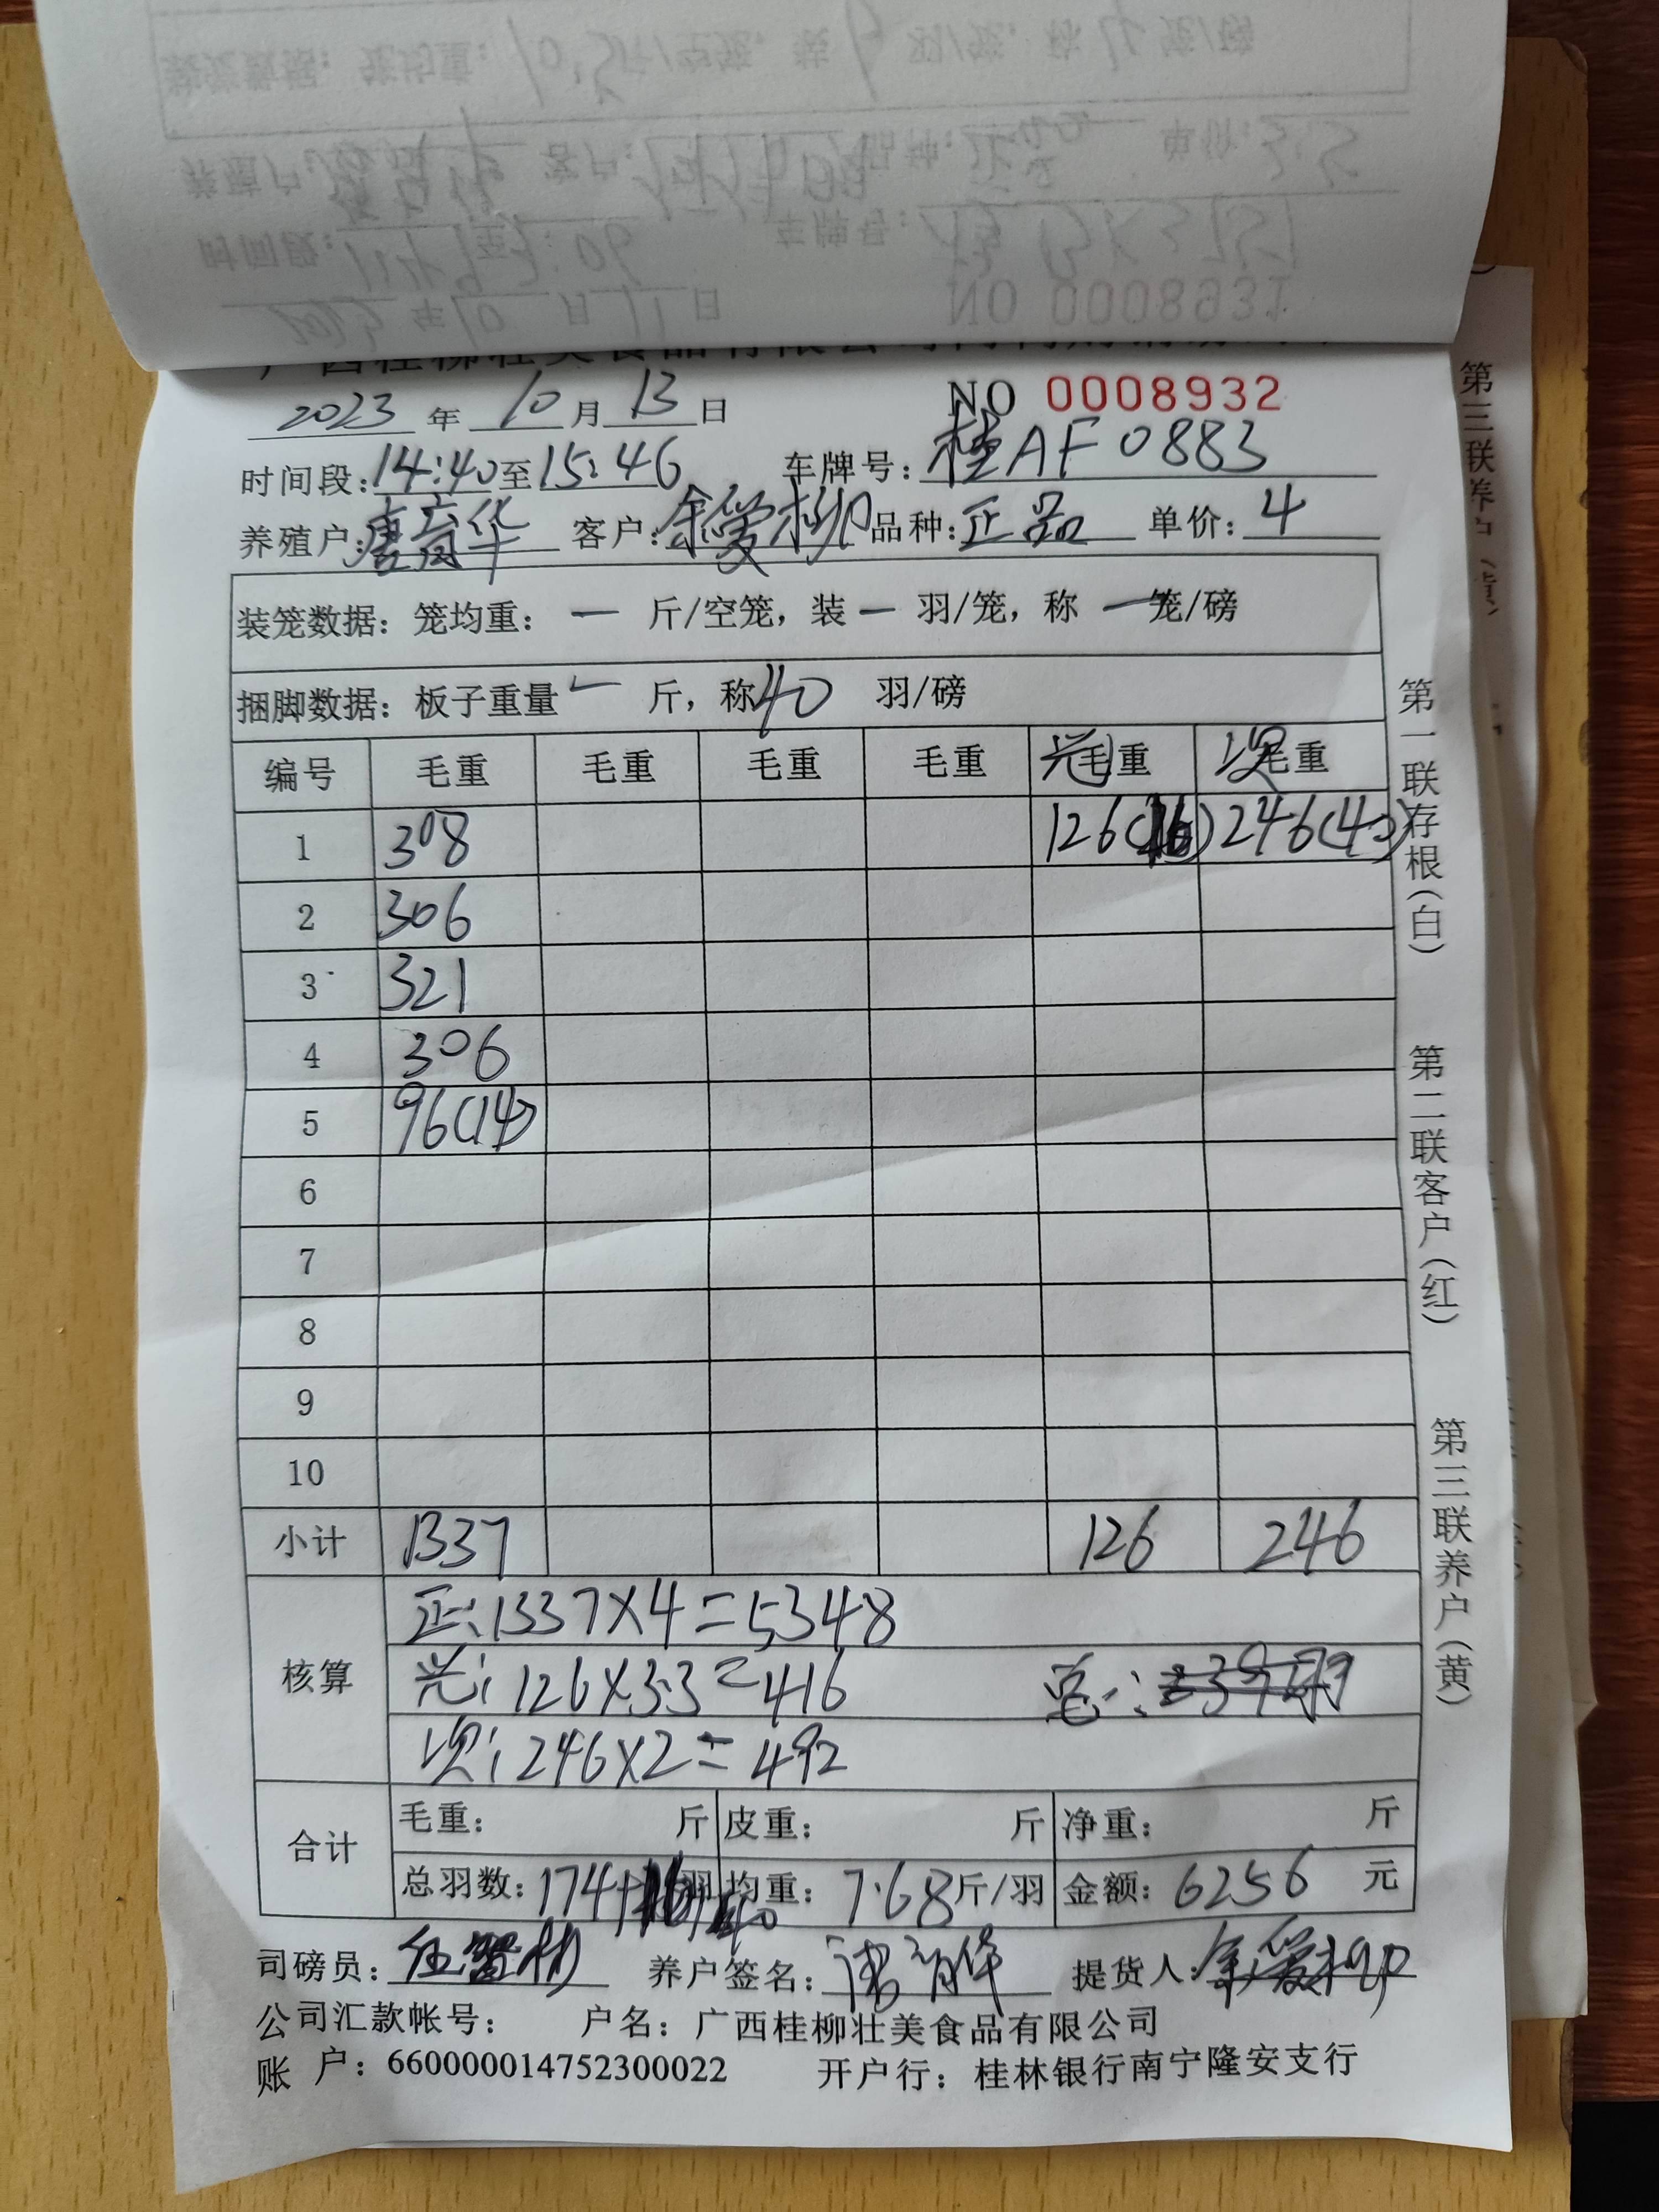 2023 年 10 月 13 日 NO 0008932
时间段: 14:40 至 15:46 车牌号: 桂AF0883
养殖户: 唐育华 客户: 余爱柳 品种: 正品 单价: 4
装笼数据: 笼均重: 一 斤/空笼, 装 一 羽/笼, 称 一 笼/磅
捆脚数据: 板子重量 斤, 称 40 羽/磅
编号 毛重 毛重 毛重 毛重 光毛重 次毛重
1 308 126(16) 246(40)
2 306
3 321
4 306
5 96(14)
6
7
8
9
10
小计 1337 126 246
核算
正: 1337×4=5348
光: 126×3.3=416 总:
次: 246×2=492
合计
毛重: 斤 皮重: 斤 净重: 斤
总羽数: 174+16+40 羽 均重: 7.68 斤/羽 金额: 6256 元
司磅员: 养户签名: 唐育华 提货人: 余爱柳
公司汇款帐号: 户名: 广西桂柳壮美食品有限公司
账 户: 660000014752300022 开户行: 桂林银行南宁隆安支行
第一联存根(白)
第二联客户(红)
第三联养户(黄)